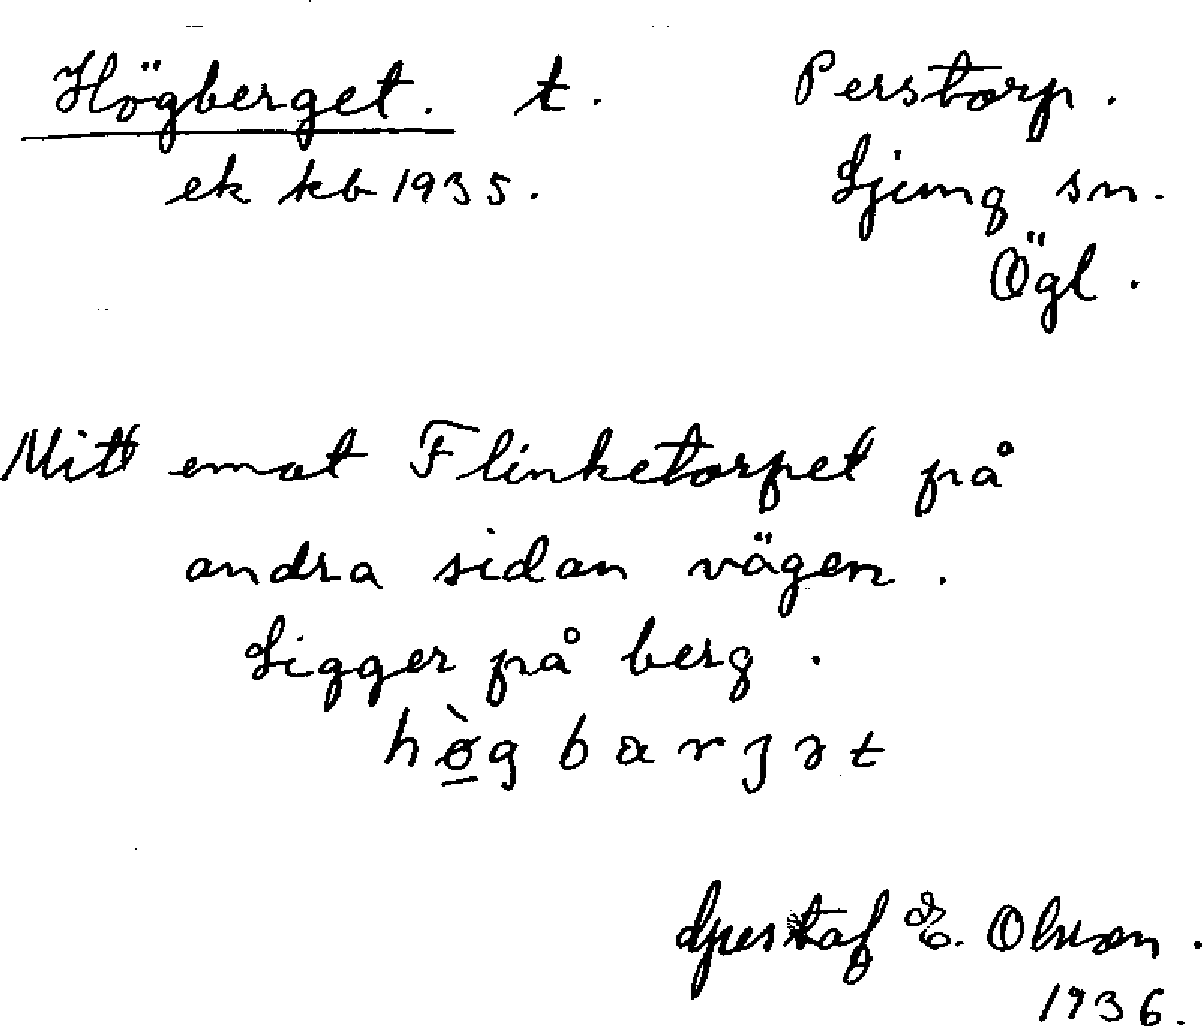 Högberget. t. Perstorp.
ek kb 1935. Ljung sn.
Ögl.
Mitt emot Flinketorpet på
andra sidan vägen.
Ligger på berg.
hø̀gbarjət
Gustaf E. Olsson.
1936.